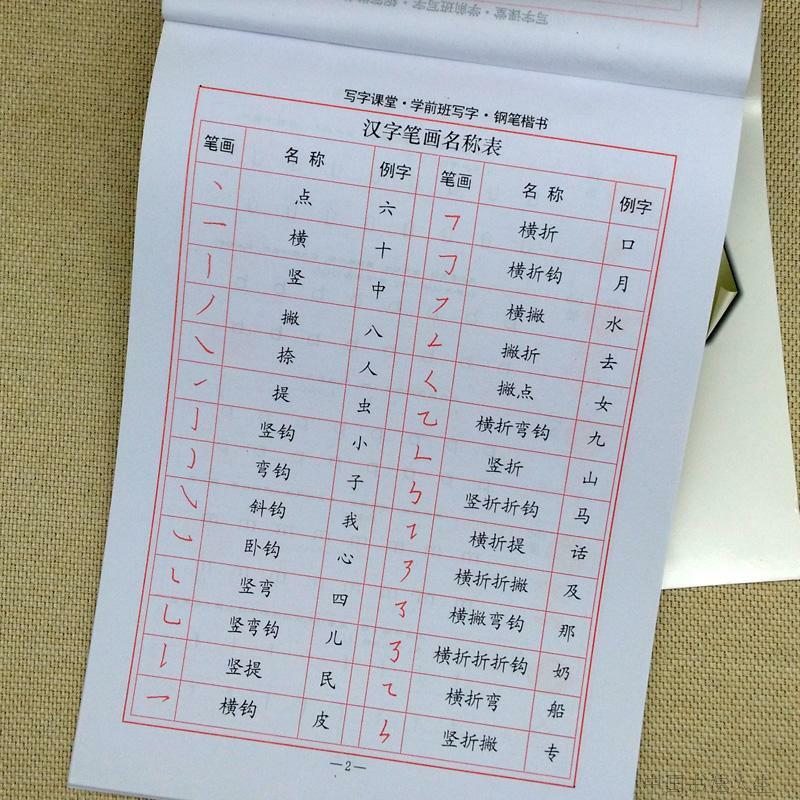 写字课堂·学前班写字·钢笔楷书
汉字笔画名称表
笔画 名称 例字 笔画 名称 例字
丶 点 六 ㇕ 横折 口
一 横 十 ㇆ 横折钩 月
丨 竖 中 ㇇ 横撇 水
丿 撇 八 ㇜ 撇折 去
㇏ 捺 人 ㇛ 撇点 女
㇀ 提 虫 ㇈ 横折弯钩 九
亅 竖钩 小 ㇗ 竖折 山
㇁ 弯钩 子 ㇉ 竖折折钩 马
㇂ 斜钩 我 ㇊ 横折提 话
㇃ 卧钩 心 ㇋ 横折折撇 及
㇄ 竖弯 四 ㇌ 横撇弯钩 那
乚 竖弯钩 儿 ㇡ 横折折折钩 奶
㇙ 竖提 民 ㇍ 横折弯 船
㇖ 横钩 皮 ㇞ 竖折撇 专
—2—